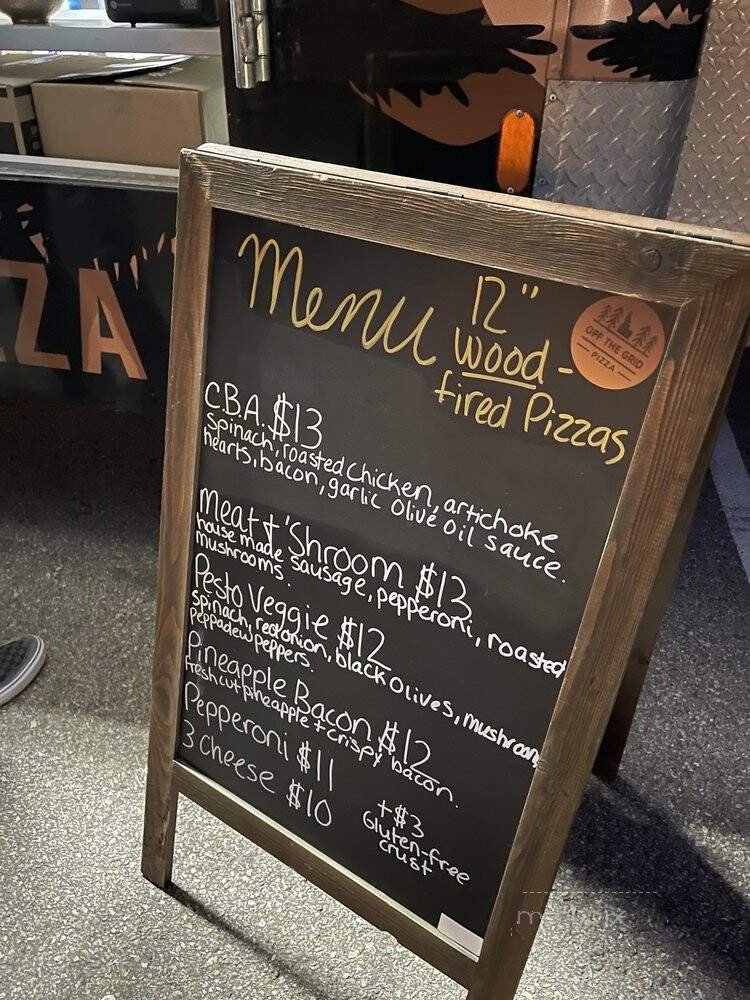 ZZA
Menu
12"
wood-
fired Pizzas
OFF THE GRID
PIZZA
C.B.A. $13
spinach, roasted chicken, artichoke
hearts, bacon, garlic olive oil sauce.
Meat + 'Shroom $13
house made sausage, pepperoni, roasted
mushrooms.
Pesto Veggie $12
spinach, red onion, black olives, mushroom,
peppadew peppers.
Pineapple Bacon $12
fresh cut pineapple + crispy bacon.
Pepperoni $11
3 cheese $10
+$3
Gluten-free
crust